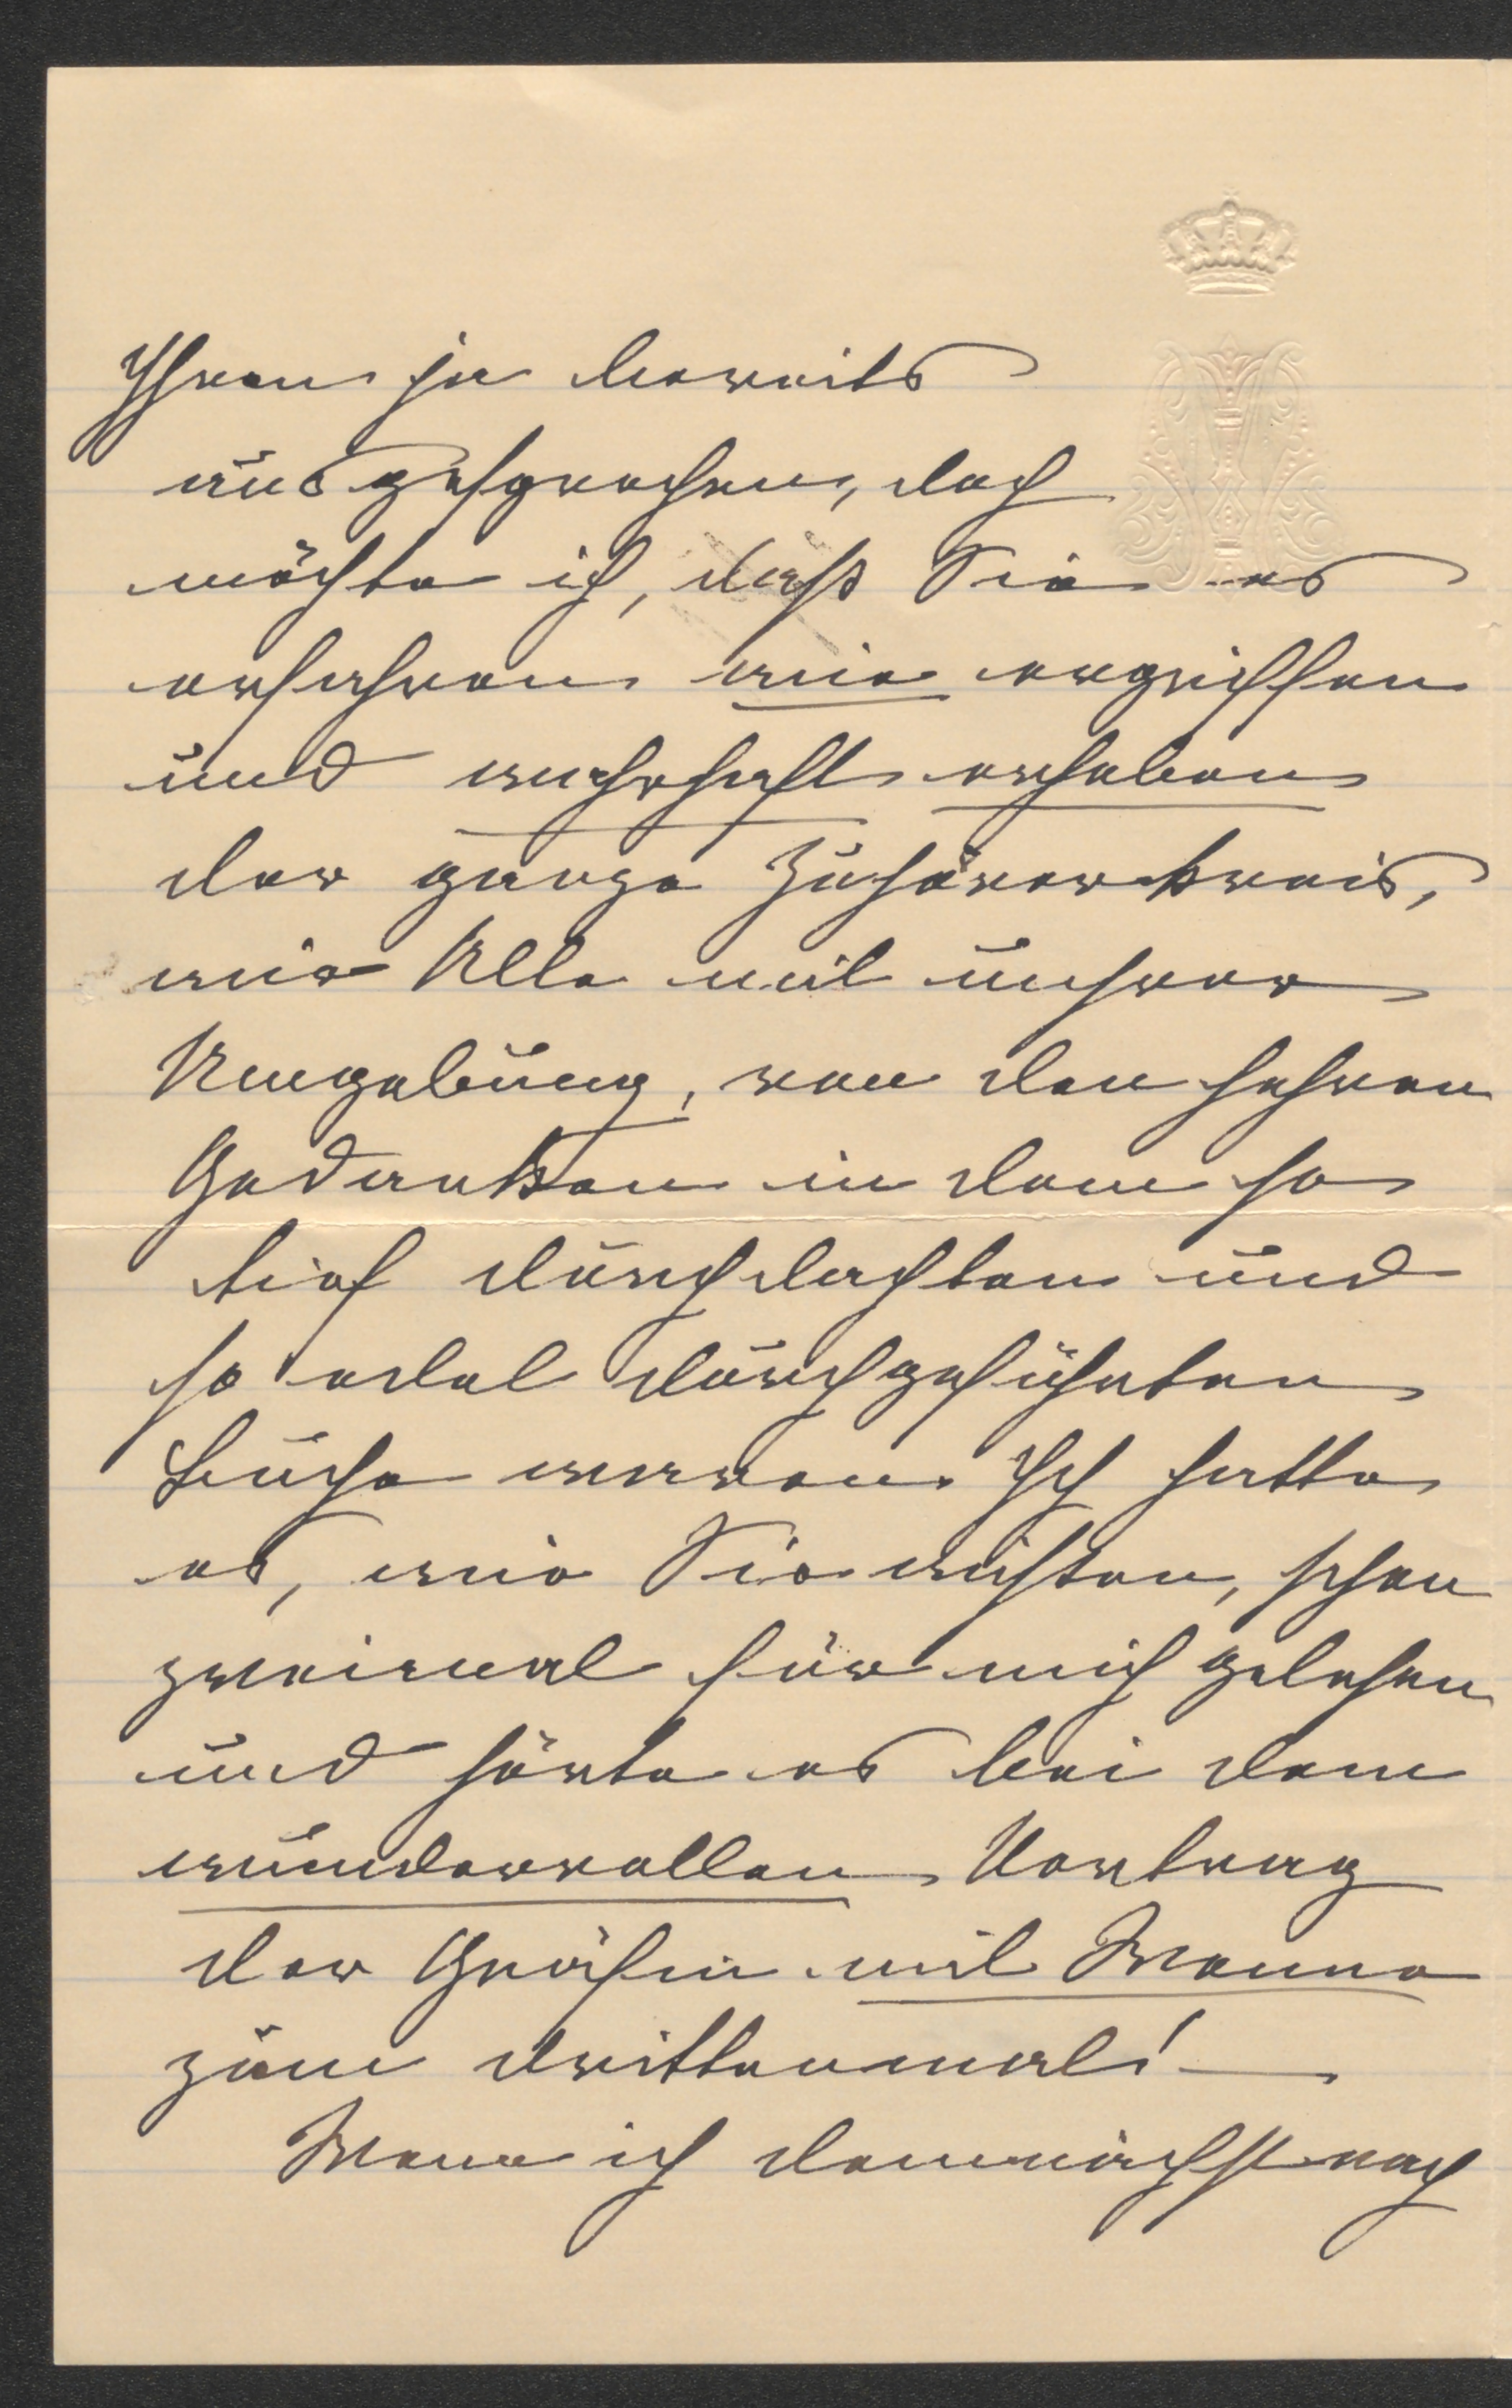 Ihnen ja bereits
ausgesprochen, doch
möchte ich, daß Sie es
erfahren wie ergriffen
und wahrhaft erhoben
der ganze Zuhörerkreis,
wir Alle mit unserer
Umgebung, von den hehren
Gedanken in dem so
tief durchdachten und
so edel durchgeführten
Buche waren. Ich hatte
es, wie Sie wißten, schon
zweimal für mich gelesen
und hörte es bei dem
wundervollen Vortrag
der Gräfin mit Wonne
zum drittenmal! —
Wenn ich demnächst nach